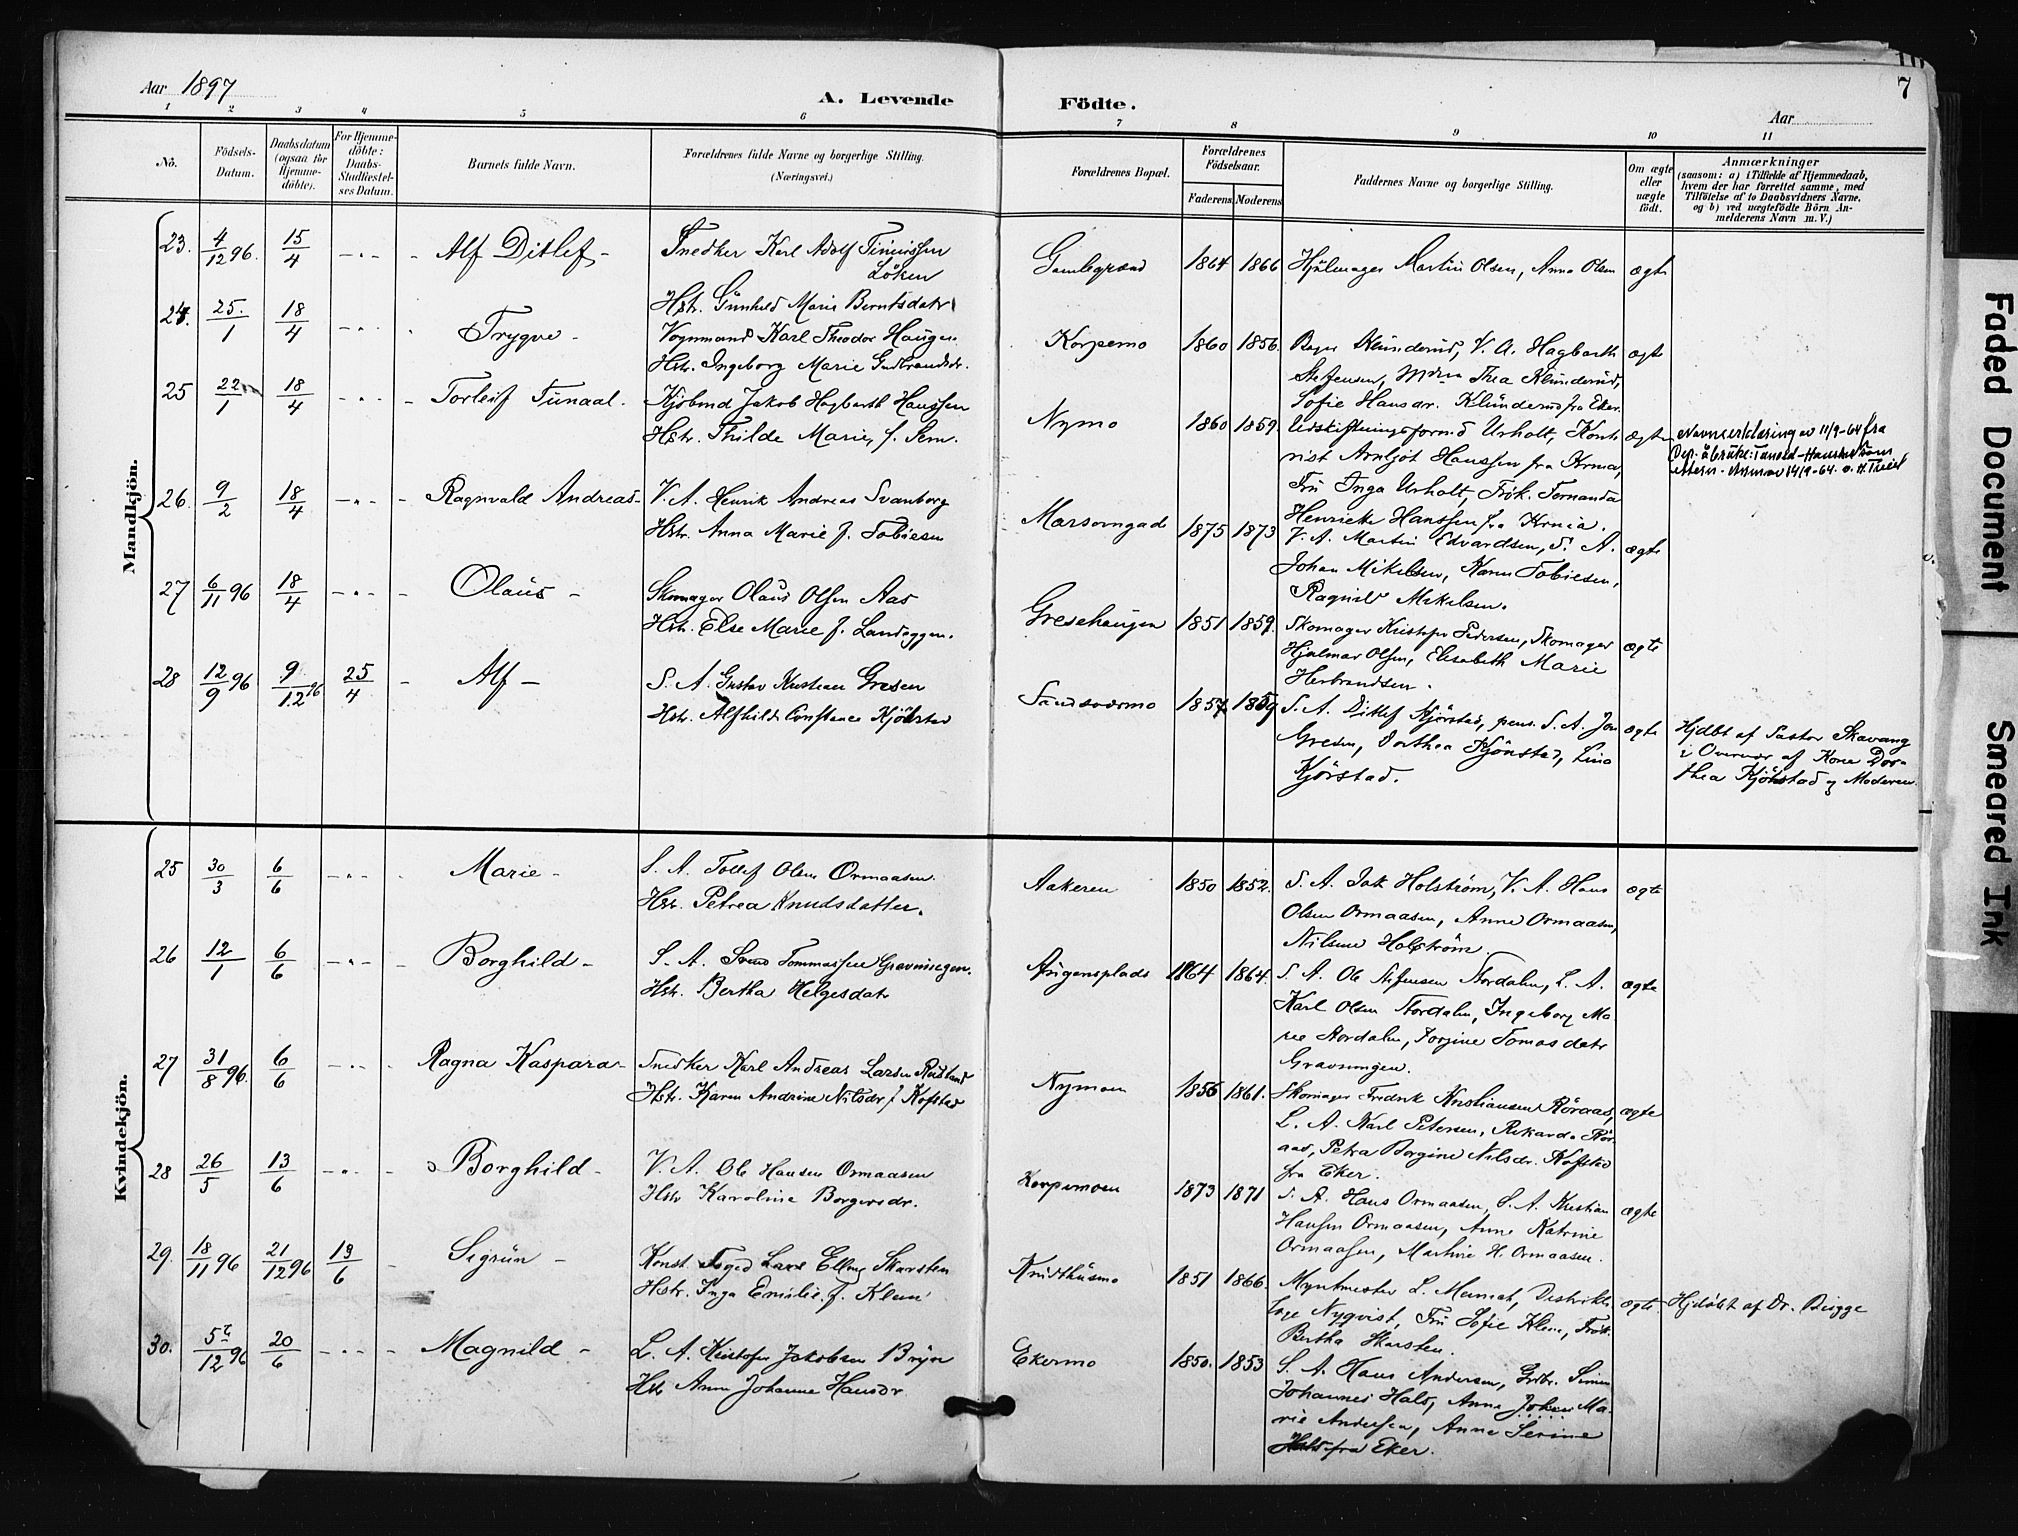 Aar 1897
A. Levende Födte.
Aar
7
1 2 3 4 5 6 7 8 9 10 11
No.
Födsels-
Datum.
Daabsdatum
(ogsaa for
Hjemme-
döbte).
For Hjemme-
döbte:
Daabs-
Stadfæstel-
ses Datum.
Barnets fulde Navn.
Forældrenes fulde Navne og borgerlige Stilling.
(Næringsvei.)
Forældrenes Bopæl.
Forældrenes
Födselsaar.
Faderens
Moderens
Faddernes Navne og borgerlige Stilling.
Om ægte
eller
uægte
födt.
Anmærkninger
(saasom: a) i Tilfælde af Hjemmedaab,
hvem der har forrettet samme, med
Tilföielse af to Daabsvidners Navne,
og b) ved uægtefödte Börn An-
melderens Navn m. V.)
Mandkjön.
23. 4/12 96. 15/4 Alf Ditlef
Snedker Karl Adolf
Löken
Hstr. Gunhild Marie Berntsdatr
1864 1866
Hjulmager Martin Olsen, Anna Olsen
ægte
24. 25/1 18/4 Trygve
Vognmand Karl Theodor Haugen
Hstr. Ingeborg Marie Gudbrandsdr.
Korpemo 1860 1856.
Klunderud, V. A. Hagbarth
Steffensen, Thea Klunderud,
Sofie Hansdr. Klunderud fra Eker.
ægte
25 22/1 18/4 Torleif Tunaal
Kjöbmd Jakob Hagbarth Hanssen
Hstr. Thilde Marie f. Sem.
Nymo 1860 1859.
Udskiftningsformd Urholt, Kont
rist Arnljot Hanssen fra Krnia,
Fru Inga Urholt, Frök. Fernanda
Henrieke Hanssen fra Krnia.
ægte
Navneerklæring av 11/9-64 fra
26. 9/2 18/4 Ragnvald Andreas
V. A. Henrik Andreas Svanborg
Hstr. Anna Marie f. Tobiesen
1875 1873
V. A. Martin Edvardsen, S. A.
Johan Mikelsen, Karen Tobiesen,
Ragnild Mikelsen.
ægte
27 6/11 96 18/4 Olaus
Skomager Olaus Olsen Aas
Hstr. Else Marie f. Landeggen.
Gresehaugen 1851 1859.
Skomager Kristofer Pedersen, Skomager
Hjalmar Olsen, Elisabeth Marie
Herbrandsen.
ægte
28 12/9 96 9/12 96 25/4 Alf
S. A. Gustav Kristian Gresen
Hstr. Alfhild Constance Kjörstad
Sandsværmo 1857 1859
S. A. Ditlef Kjörstad, pens. S. A. Jon
Gresen, Dorthea Kjörstad, Lina
Kjörstad.
ægte
Hjdbt af Pastor Skavang
i Overvær af Kone Dor-
thea Kjörstad og Moderen.
Kvindekjön.
25 30/3 6/6 Marie
S. A. Tollef Olsen Ormaasen.
Hstr. Petrea Knudsdatter.
Aakeren 1850 1852.
S. A. Holström, V. A. Hans
Olsen Ormaasen, Anne Ormaasen,
Nilsine Holström.
ægte
26 12/1 6/6 Borghild
S. A. Svend Tommassen Gravningen.
Hstr. Bertha Helgesdatr
1864 1864.
S. A. Ole Steffensen Stordalen, L. A.
Karl Olsen Stordalen, Ingeborg Ma
rie Stordalen, Torgine Tomasdatr
Gravningen.
ægte
27 31/8 96. 6/6 Ragna Kaspara
Snedker Karl Andreas Larsen
Hstr. Karen Andrine Nilsdr f Kofstad
Nymoen 1856 1861.
Skomager Fredrik Kristiansen Röraas,
L. A. Karl Petersen, Rikarda Rör-
aas, Petra Borgine Nilsdr. Kofstad
fra Eker.
ægte
28 26/5 13/6 Borghild
V. A. Ole Hansen Ormaasen
Hstr Karoline Borgersdr.
Korpemoen 1873 1871
S. A. Hans Ormaasen, S. A. Kristian
Hansen Ormaasen, Anne Katrine
Ormaasen, Martine H. Ormaasen.
ægte
29. 18/11 96 21/12 96 13/6 Sigrun
Konst. Foged Lars Elling Skarsten
Hstr. Inga Emilie f. Klem
Krudthusmo 1851 1866.
Myntmester L. , Distrikts
læge Nyqvist, Fru Sofie Klem, Frök.
Bertha Skarsten.
ægte
Hjdöbt af Dr. Bugge
30. 5/12 96 20/6 Magnild
L. A. Kristofer Jakobsen Bryn
Hstr Anne Johanne Hansdr
Ekermo 1850. 1853
S. A. Hans Andersen, Grdbr. Simen
Johannes Hals, Anna Ma-
rie Andersen, Anne Serine
Hals fra Eker.
Faded Document
Smeared Ink